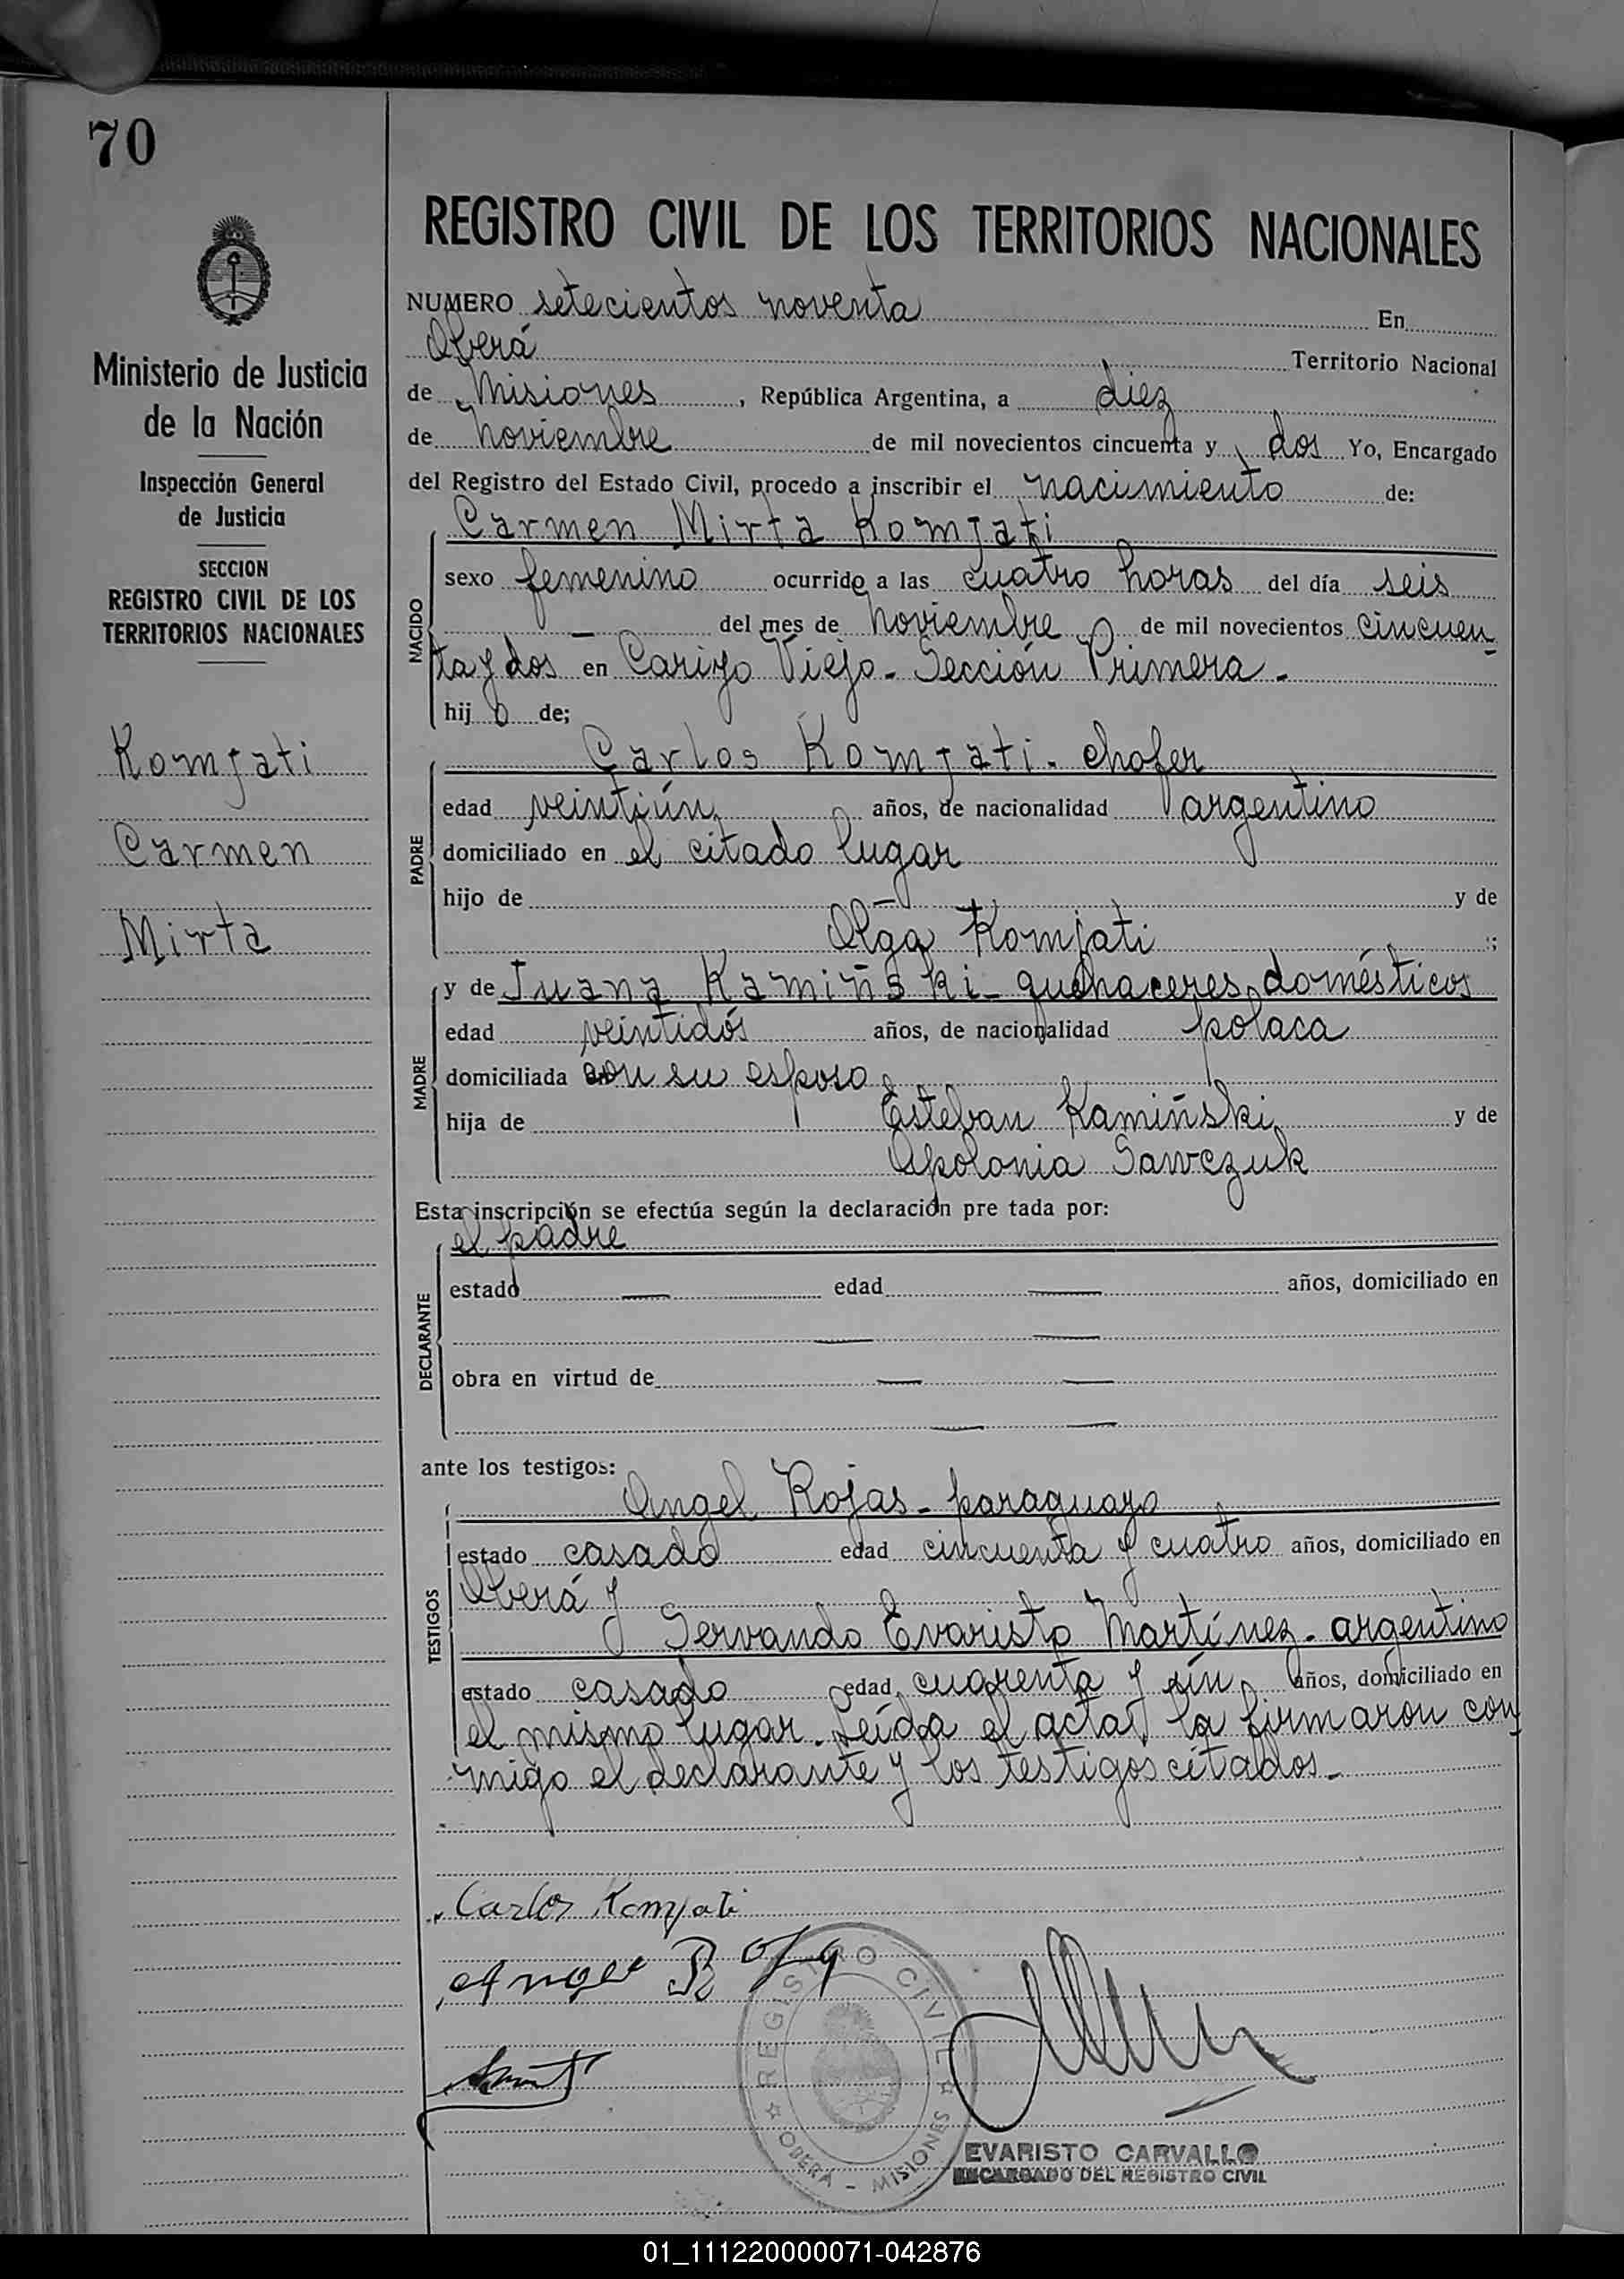 70
Ministerio de Justicia
de la Nación
Inspección General
de Justicia
SECCION
REGISTRO CIVIL DE LOS
TERRITORIOS NACIONALES
Komjati
Carmen
Mirta
REGISTRO CIVIL DE LOS TERRITORIOS NACIONALES
NUMERO setecientos noventa En
Oberá Territorio Nacional
de Misiones, República Argentina, a diez
de Noviembre de mil novecientos cincuenta y dos Yo, Encargado
del Registro del Estado Civil, procedo a inscribir el nacimiento de:
Carmen Mirta Komjati
NACIDO
sexo femenino ocurrido a las cuatro horas del día seis
— del mes de Noviembre de mil novecientos cincuen
ta y dos en Cariyo Viejo - Sección Primera -
hij a de;
PADRE
Carlos Komjati - chofer
edad veintiún años, de nacionalidad argentino
domiciliado en el citado lugar
hijo de — y de
Olga Komjati ;
MADRE
y de Juana Kamiñski - quehaceres domésticos
edad veintidós años, de nacionalidad polaca
domiciliada con su esposo
hija de Esteban Kamiñski y de
Apolonia Sawczuk
Esta inscripción se efectúa según la declaración pre tada por:
DECLARANTE
el padre
estado — edad — años, domiciliado en
— —
obra en virtud de — —
— —
ante los testigos:
TESTIGOS
Angel Rojas - paraguayo
estado casado edad cincuenta y cuatro años, domiciliado en
Oberá y
Servando Evaristo Martínez - argentino
estado casado edad cuarenta y ún años, domiciliado en
el mismo lugar. Leída el acta, la firmaron con
migo el declarante y los testigos citados.-
Carlos Komjati
Angel
REGISTRO CIVIL
OBERÁ - MISIONES
EVARISTO CARVALLO
ENCARGADO DEL REGISTRO CIVIL
01_111220000071-042876